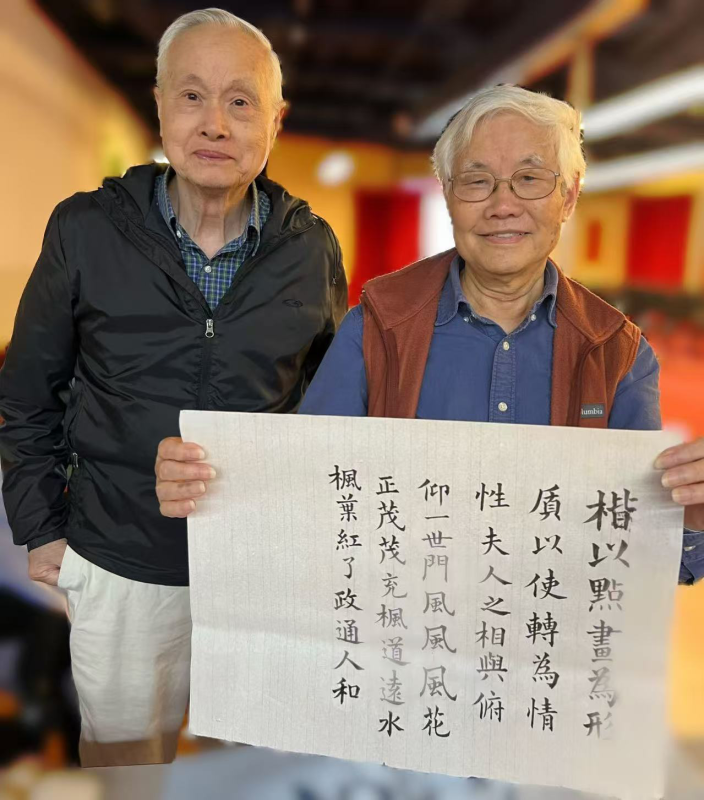 楷以點畫為形
貭以使轉為情
性夫人之相與俯
仰一世門風風風花
正茂茂充楓道遠水
楓葉紅了政通人和
lumbia